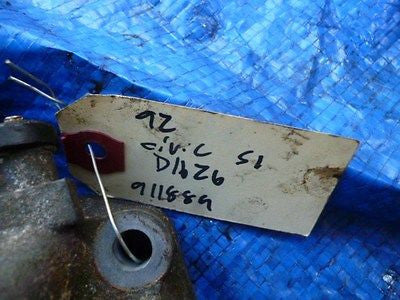 92
civic Si
D1B26
911889